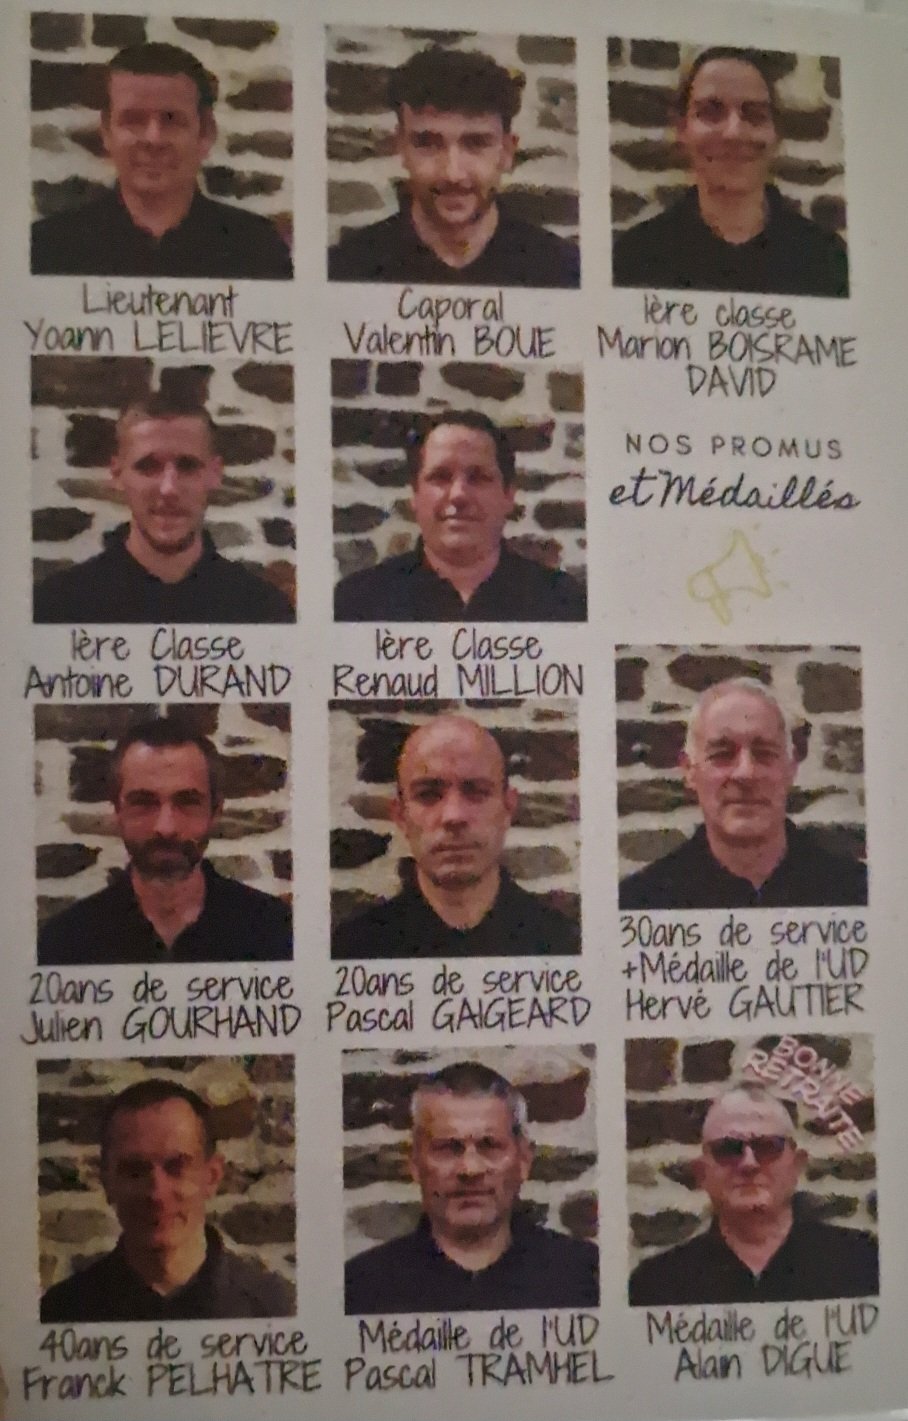 Lieutenant
Yoann LELIEVRE
Caporal
Valentin BOUE
1ère classe
Marion BOISRAME
DAVID
1ère Classe
Antoine DURAND
1ère Classe
Renaud MILLION
NOS PROMUS
et Médaillés
20ans de service
Julien GOURHAND
20ans de service
Pascal GAIGEARD
30ans de service
+Médaille de l'UD
Hervé GAUTIER
40ans de service
Franck PELHATRE
Médaille de l'UD
Pascal TRAMHEL
BONNE
RETRAITE
Médaille de l'UD
Alain DIGUE